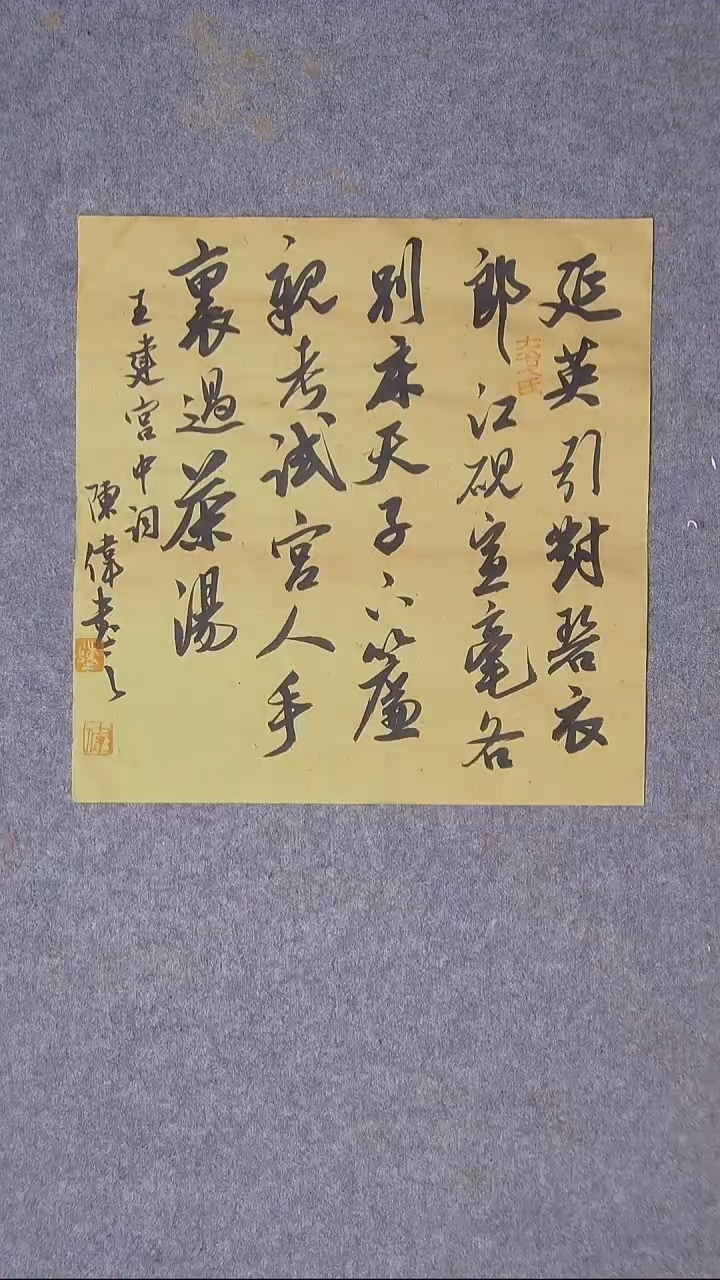 延英引對碧衣
郎江硯宣毫各
別床天子下簾
親考試宮人手
裏過茶湯
王建宮中詞
陳偉書
偉